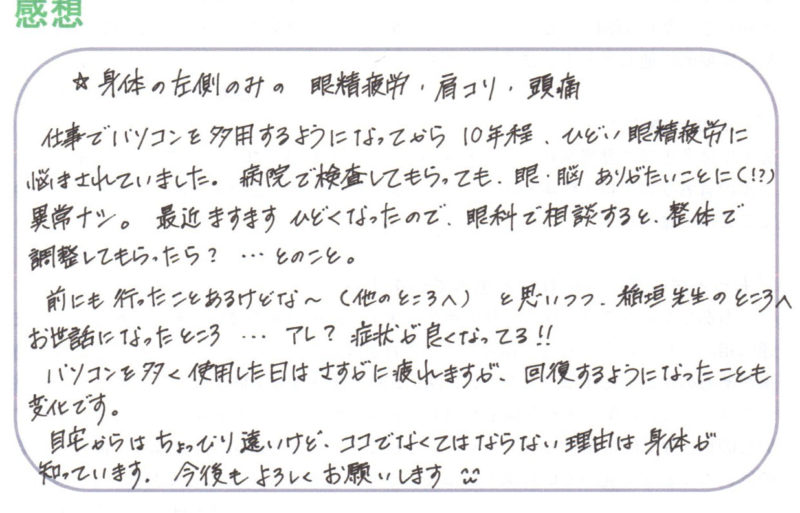 感想
☆身体の左側のみの 眼精疲労・肩コリ・頭痛
仕事でパソコンを多用するようになってから 10年程、ひどい眼精疲労に
悩まされていました。病院で検査してもらっても、眼・脳 ありがたいことに(!?)
異常ナシ。最近ますます ひどくなったので、眼科で相談すると、整体で
調整してもらったら? … とのこと。
前にも 行ったことあるけどな〜 (他のところへ) と思いつつ、稲垣先生のところへ
お世話になったところ … アレ? 症状が良くなってる!!
パソコンを多く使用した日は さすがに疲れますが、回復するようになったことも
変化です。
自宅からは ちょっぴり遠いけど、ココでなくてはならない理由は 身体が
知っています。今後もよろしくお願いします ^^